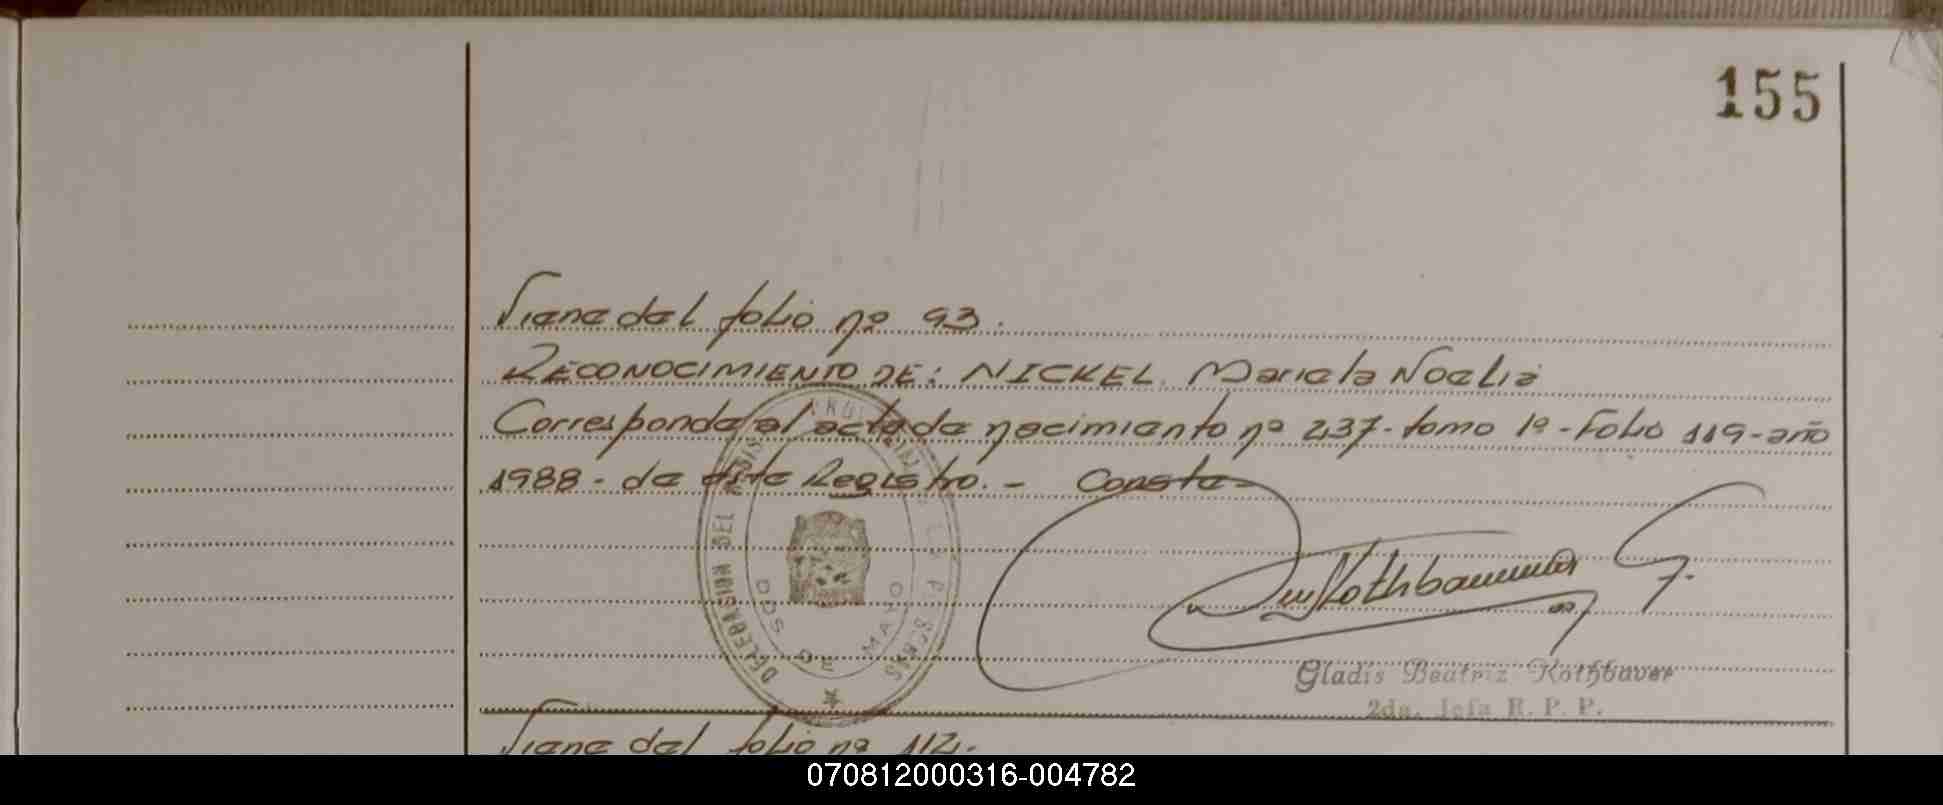 155
Viene del folio nº 93.
RECONOCIMIENTO DE: NICKEL Mariela Noelia
Corresponde al acta de nacimiento nº 237- tomo 1º- Folio 119- año
1988 - de este Registro. - Conste -
DELEGACION DEL REGIS
DOS DE MAYO
Rothbauer
Gladis Beatriz Rothbaver
2da. Jefa R. P. P.
Viene del folio nº 112.
070812000316-004782